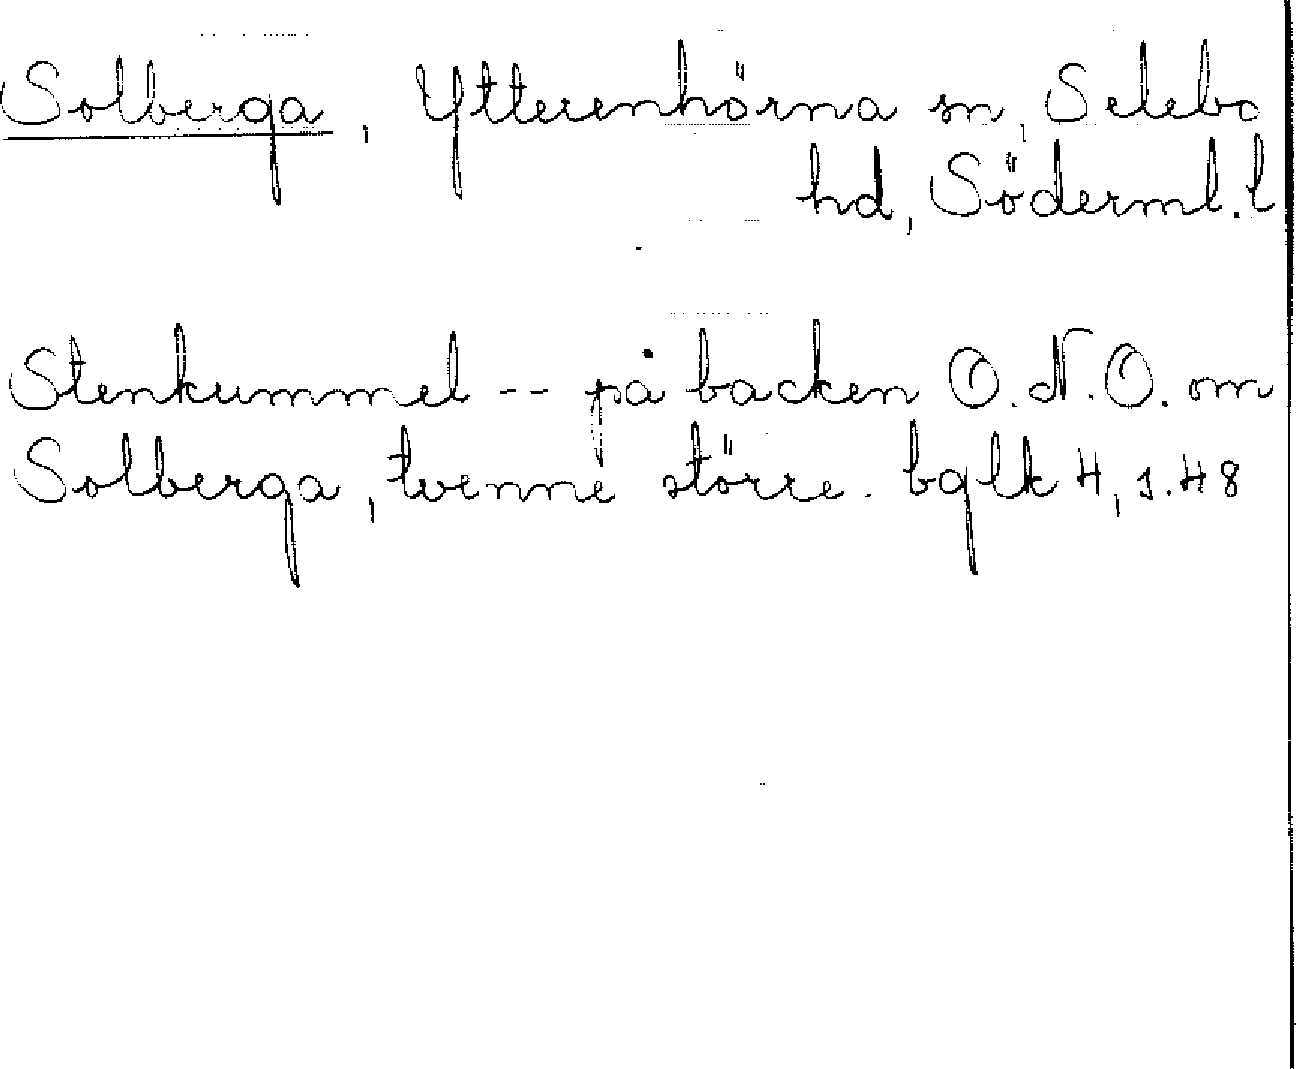 Solberga, Ytterenhörna sn, Selebo
hd, Söderml. l
Stenkummel -- på backen O.N.O. om
Solberga, tvenne större. bglk 4, s. 48